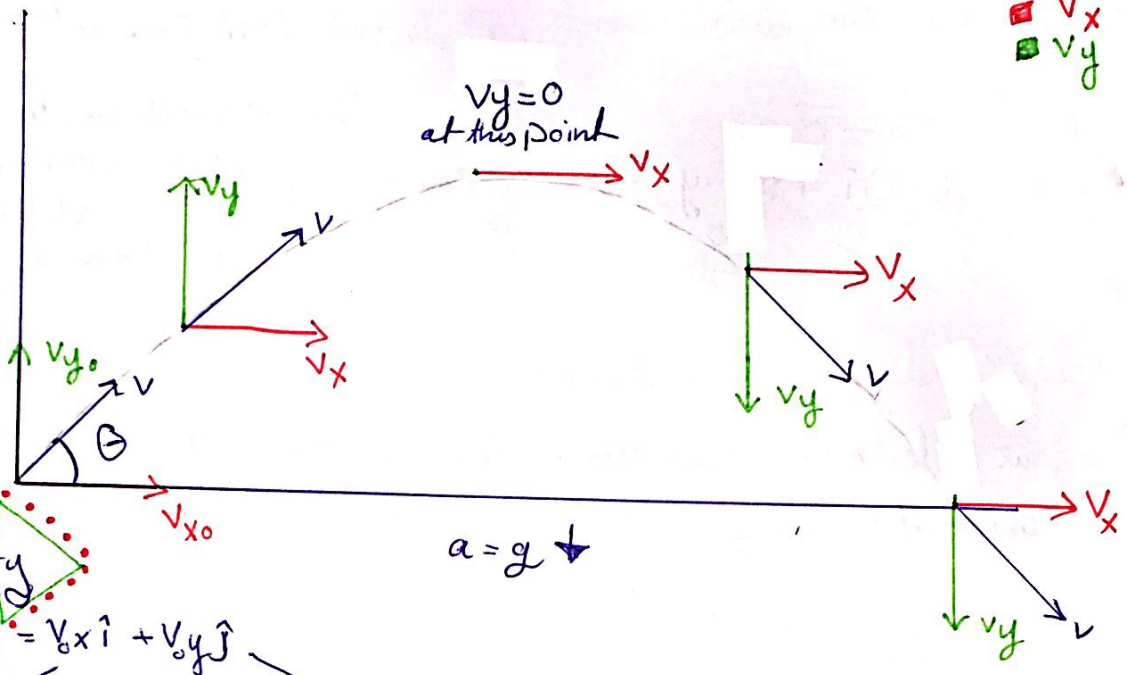 Vx
Vy
Vy=0
at this point
Vx
Vy
V
Vx
Vx
V
Vy
Vy₀
V
θ
Vx₀
a = g ↓
Vx
V
Vy
y
= V₀x î + V₀y ĵ